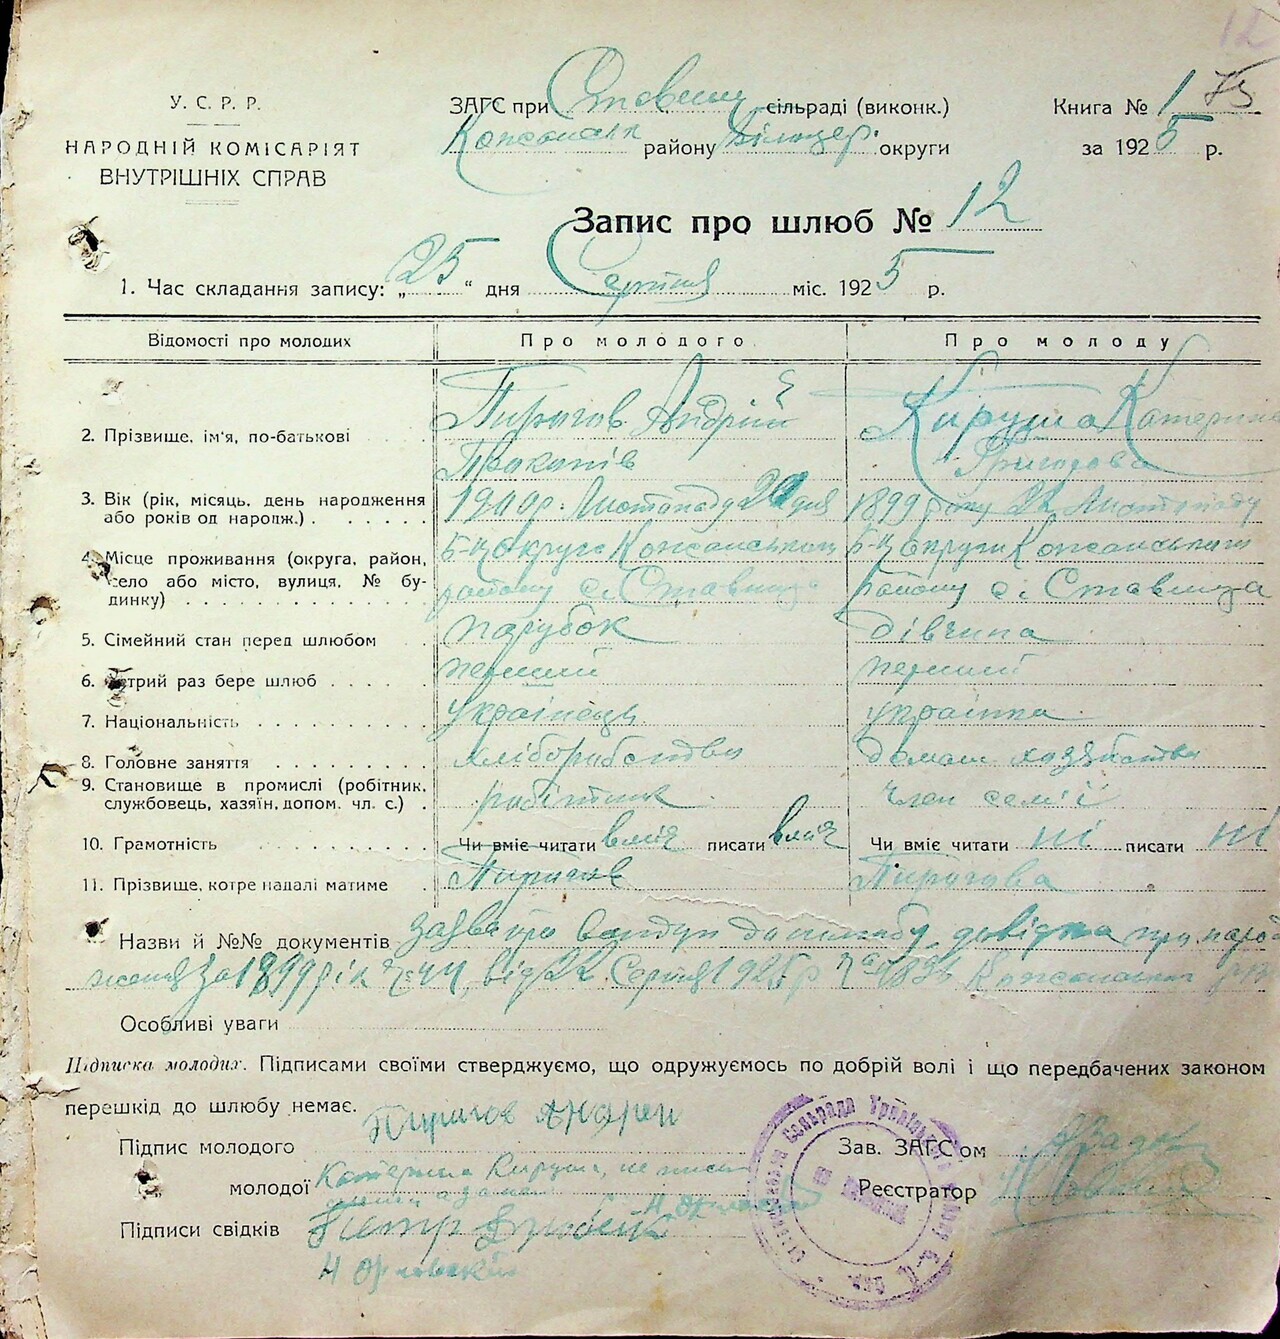 12
У. С. Р. Р.
НАРОДНІЙ КОМІСАРІЯТ
ВНУТРІШНІХ СПРАВ
ЗАГС при сільраді (виконк.)
району Білоцер. округи
Книга № 1 75
за 1925 р.
Запис про шлюб № 12
1. Час складання запису: „25“ дня Серпня міс. 1925 р.
Відомості про молодих Про молодого Про молоду
2. Прізвище, ім'я, по-батькові Пирогов Андрій Кируша Катерина
Пракопів Григорова
3. Вік (рік, місяць, день народження 1900р. Листопаду дня 1899 року 22 Листопаду
або років од народж.)
4. Місце проживання (округа, район, Б-Ц округа Кожанського Б-Ц округи Кожанського
село або місто, вулиця, № бу- району с. Ставища району с. Ставища
динку)
5. Сімейний стан перед шлюбом парубок дівчина
6. Котрий раз бере шлюб перший перший
7. Національність українець українка
8. Головне заняття хліборобство домаш. хазяйство
9. Становище в промислі (робітник, робітник член сем'ї
службовець, хазяїн, допом. чл. с.)
10. Грамотність Чи вміє читати вміє писати вміє Чи вміє читати ні писати ні
11. Прізвище, котре надалі матиме Пирогов Пирогова
Назви й №№ документів заява про вступ до шлюбу, довідка про народ
ження за 1899 рік від 22 Серпня 1925 р
Особливі уваги
Підписка молодих. Підписами своїми стверджуємо, що одружуємось по добрій волі і що передбачених законом
перешкід до шлюбу немає.
Підпис молодого Пирогов Андрей
Зав. ЗАГС'ом
молодої Катерина Кируша, не
Реєстратор
Підписи свідків Петр